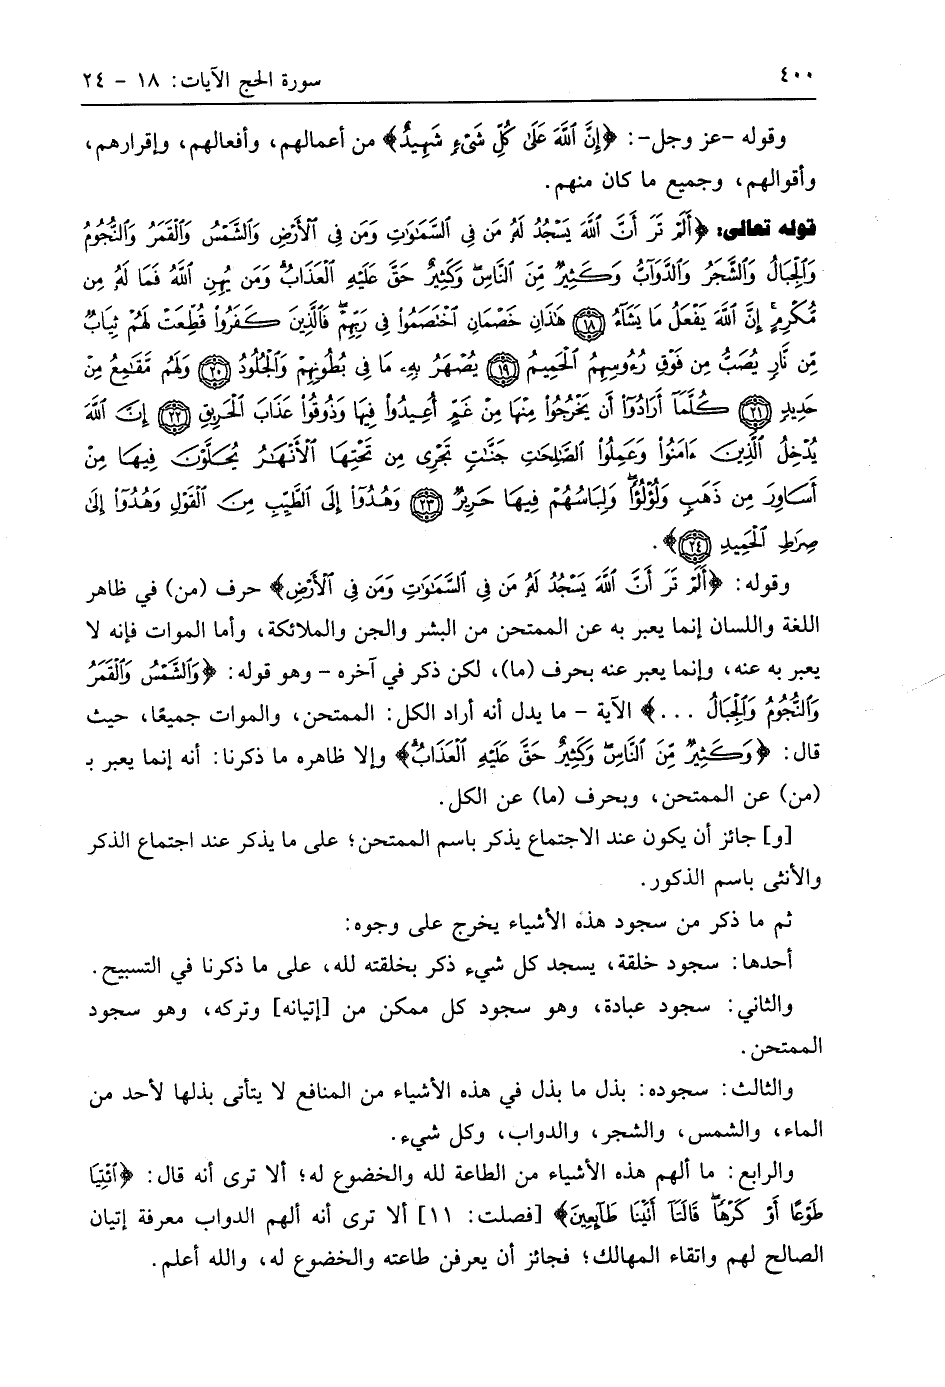 ٤٠٠ سورة الحج الآيات: ١٨ - ٢٤
وقوله -عز وجل-: ﴿إِنَّ ٱللَّهَ عَلَىٰ كُلِّ شَىْءٍ شَهِيدٌ﴾ من أعمالهم، وأفعالهم، وإقرارهم،
وأقوالهم، وجميع ما كان منهم.
قوله تعالى: ﴿أَلَمْ تَرَ أَنَّ ٱللَّهَ يَسْجُدُ لَهُۥ مَن فِى ٱلسَّمَٰوَٰتِ وَمَن فِى ٱلْأَرْضِ وَٱلشَّمْسُ وَٱلْقَمَرُ وَٱلنُّجُومُ
وَٱلْجِبَالُ وَٱلشَّجَرُ وَٱلدَّوَآبُّ وَكَثِيرٌ مِّنَ ٱلنَّاسِ ۖ وَكَثِيرٌ حَقَّ عَلَيْهِ ٱلْعَذَابُ ۗ وَمَن يُهِنِ ٱللَّهُ فَمَا لَهُۥ مِن
مُّكْرِمٍ ۚ إِنَّ ٱللَّهَ يَفْعَلُ مَا يَشَآءُ ۩ ﴿١٨﴾ هَٰذَانِ خَصْمَانِ ٱخْتَصَمُوا۟ فِى رَبِّهِمْ ۖ فَٱلَّذِينَ كَفَرُوا۟ قُطِّعَتْ لَهُمْ ثِيَابٌ
مِّن نَّارٍ يُصَبُّ مِن فَوْقِ رُءُوسِهِمُ ٱلْحَمِيمُ ﴿١٩﴾ يُصْهَرُ بِهِۦ مَا فِى بُطُونِهِمْ وَٱلْجُلُودُ ﴿٢٠﴾ وَلَهُم مَّقَٰمِعُ مِنْ
حَدِيدٍ ﴿٢١﴾ كُلَّمَآ أَرَادُوٓا۟ أَن يَخْرُجُوا۟ مِنْهَا مِنْ غَمٍّ أُعِيدُوا۟ فِيهَا وَذُوقُوا۟ عَذَابَ ٱلْحَرِيقِ ﴿٢٢﴾ إِنَّ ٱللَّهَ
يُدْخِلُ ٱلَّذِينَ ءَامَنُوا۟ وَعَمِلُوا۟ ٱلصَّٰلِحَٰتِ جَنَّٰتٍ تَجْرِى مِن تَحْتِهَا ٱلْأَنْهَٰرُ يُحَلَّوْنَ فِيهَا مِنْ
أَسَاوِرَ مِن ذَهَبٍ وَلُؤْلُؤًا ۖ وَلِبَاسُهُمْ فِيهَا حَرِيرٌ ﴿٢٣﴾ وَهُدُوٓا۟ إِلَى ٱلطَّيِّبِ مِنَ ٱلْقَوْلِ وَهُدُوٓا۟ إِلَىٰ
صِرَٰطِ ٱلْحَمِيدِ ﴿٢٤﴾﴾.
وقوله: ﴿أَلَمْ تَرَ أَنَّ ٱللَّهَ يَسْجُدُ لَهُۥ مَن فِى ٱلسَّمَٰوَٰتِ وَمَن فِى ٱلْأَرْضِ﴾ حرف (من) في ظاهر
اللغة واللسان إنما يعبر به عن الممتحن من البشر والجن والملائكة، وأما الموات فإنه لا
يعبر به عنه، وإنما يعبر عنه بحرف (ما)، لكن ذكر في آخره - وهو قوله: ﴿وَٱلشَّمْسُ وَٱلْقَمَرُ
وَٱلنُّجُومُ وَٱلْجِبَالُ ...﴾ الآية - ما يدل أنه أراد الكل: الممتحن، والموات جميعًا، حيث
قال: ﴿وَكَثِيرٌ مِّنَ ٱلنَّاسِ ۖ وَكَثِيرٌ حَقَّ عَلَيْهِ ٱلْعَذَابُ﴾ وإلا ظاهره ما ذكرنا: أنه إنما يعبر بـ
(من) عن الممتحن، وبحرف (ما) عن الكل.
[و] جائز أن يكون عند الاجتماع يذكر باسم الممتحن؛ على ما يذكر عند اجتماع الذكر
والأنثى باسم الذكور.
ثم ما ذكر من سجود هذه الأشياء يخرج على وجوه:
أحدها: سجود خلقة، يسجد كل شيء ذكر بخلقته لله، على ما ذكرنا في التسبيح.
والثاني: سجود عبادة، وهو سجود كل ممكن من [إتيانه] وتركه، وهو سجود
الممتحن.
والثالث: سجوده: بذل ما بذل في هذه الأشياء من المنافع لا يتأتى بذلها لأحد من
الماء، والشمس، والشجر، والدواب، وكل شيء.
والرابع: ما ألهم هذه الأشياء من الطاعة لله والخضوع له؛ ألا ترى أنه قال: ﴿ٱئْتِيَا
طَوْعًا أَوْ كَرْهًا قَالَتَآ أَتَيْنَا طَآئِعِينَ﴾ [فصلت: ١١] ألا ترى أنه ألهم الدواب معرفة إتيان
الصالح لهم واتقاء المهالك؛ فجائز أن يعرفن طاعته والخضوع له، والله أعلم.